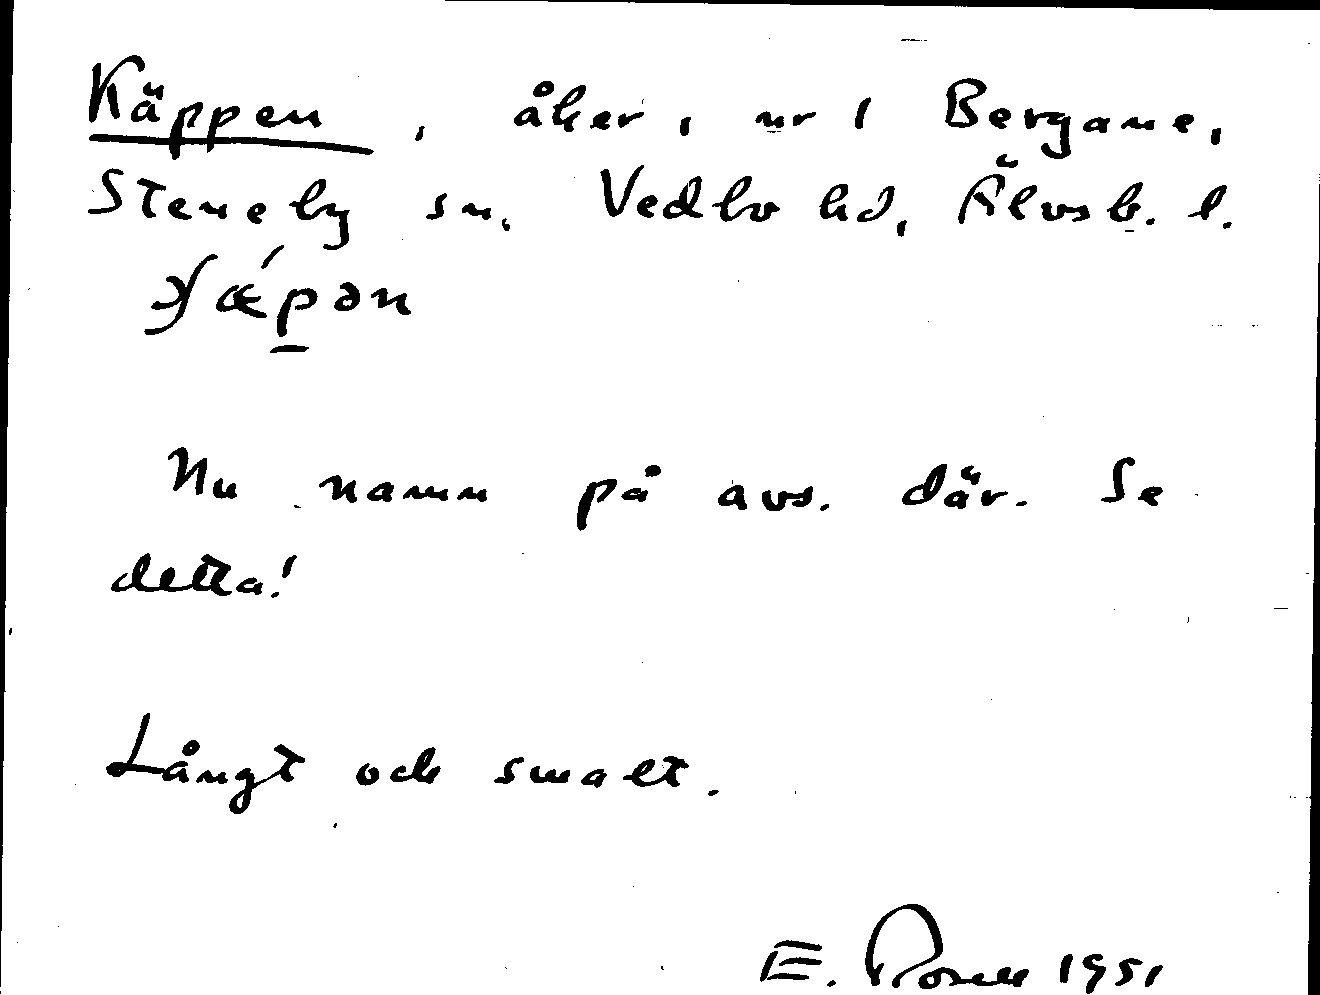 Käppen, åker, nr 1 Bergane,
Steneby sn, Vedbo hd, Älvsb. l.
Nu namn på avs. där. Se
detta!
Långt och smalt.
E. Rosell 1951